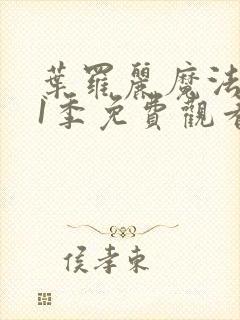 葉羅麗魔法
1季免費觀看
侯孝東